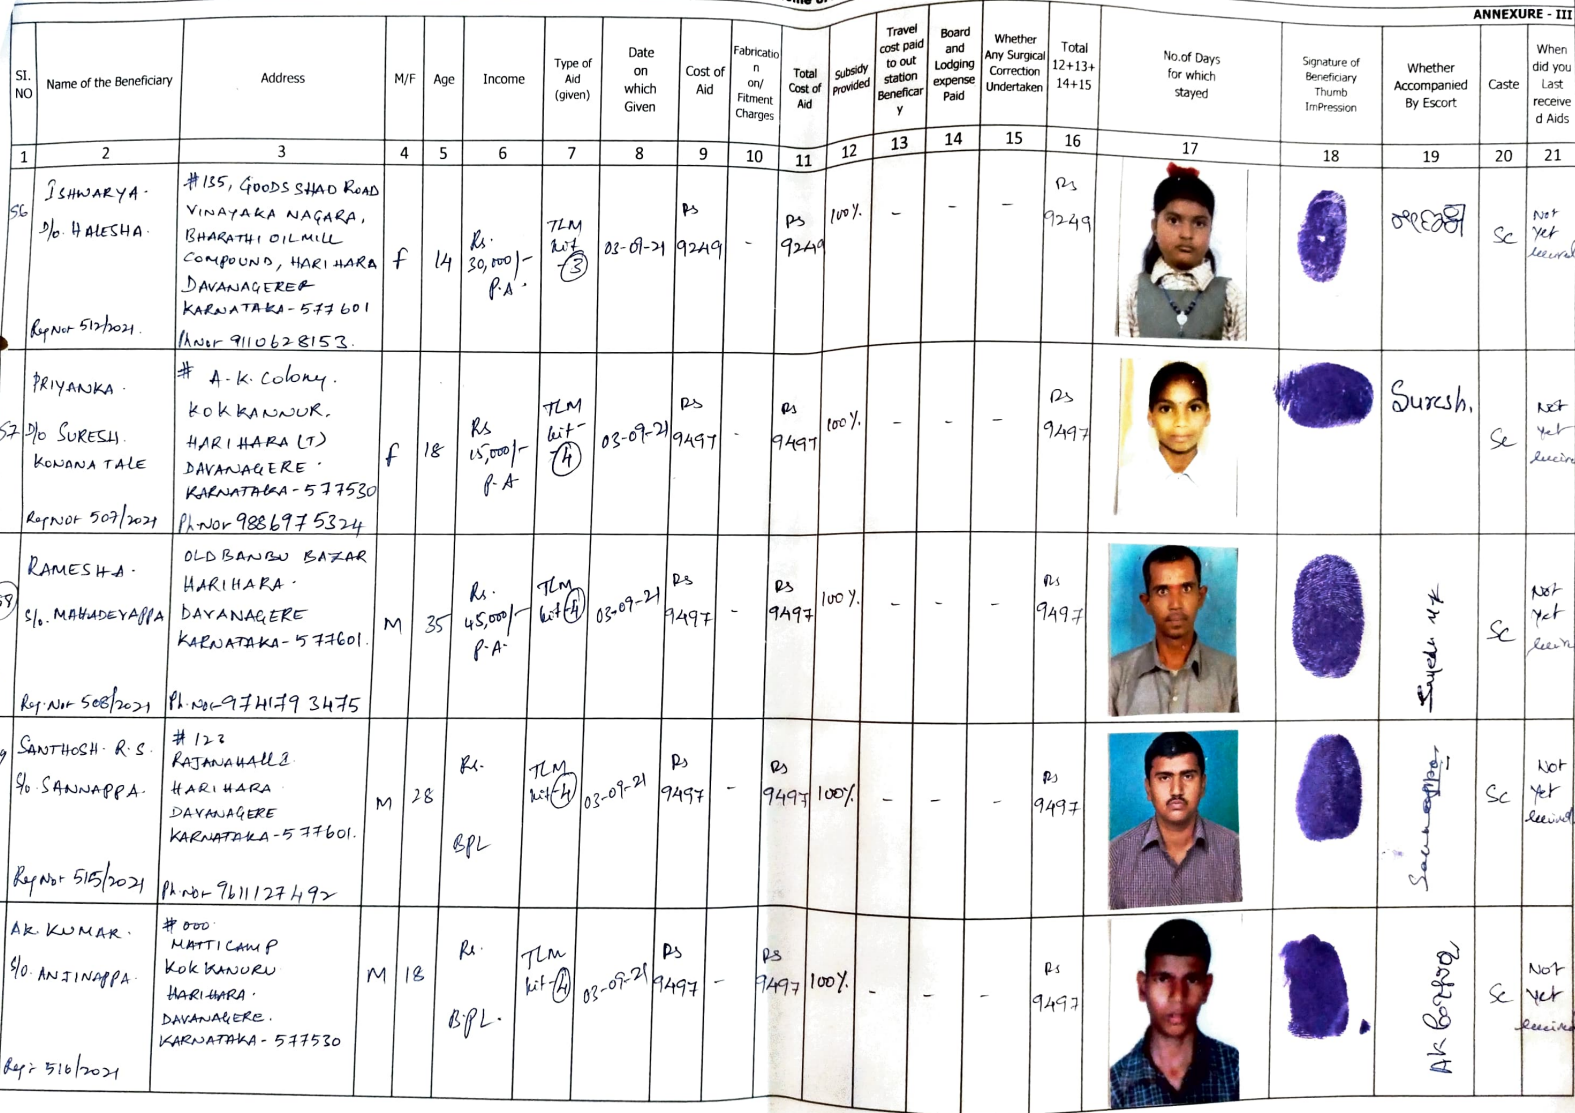 ANNEXURE - III
SI. NO
Name of the Beneficiary
Address
M/F
Age
Income
Type of Aid (given)
Date on which Given
Cost of Aid
Fabricatio n on/ Fitment Charges
Total Cost of Aid
Subsidy Provided
Travel cost paid to out station Beneficar y
Board and Lodging expense Paid
Whether Any Surgical Correction Undertaken
Total 12+13+ 14+15
No.of Days for which stayed
Signature of Beneficiary Thumb ImPression
Whether Accompanied By Escort
Caste
When did you Last receive d Aids
1 2 3 4 5 6 7 8 9 10 11 12 13 14 15 16 17 18 19 20 21
56
ISHWARYA.
D/o. HALESHA.
Reg Nor 512/2021.
#135, GOODS SHAD ROAD
VINAYAKA NAGARA,
BHARATHI OILMILL
COMPOUND, HARIHARA
DAVANAGERER
KARNATAKA-577601
Ph Nor 9110628153.
F
14
Rs. 30,000/- P.A.
TLM kit -3
03-09-21
Rs 9249
-
Rs 9249
100%
-
-
-
Rs 9249
Sc
Not yet
57
PRIYANKA.
D/o SURESH.
KONANATALE
Reg Nor 507/2021
# A-K. Colony.
KOKKANNUR.
HARIHARA (T)
DAVANAGERE.
KARNATAKA-577530
Ph-Nor 9886975324
F
18
Rs 15,000/- P-A
TLM kit- 4
03-09-21
Rs 9497
-
Rs 9497
100%
-
-
-
Rs 9497
Suresh.
Sc
Not yet
58
RAMESHA.
S/o. MAHADEVAPPA
Reg. Nor 508/2021
OLD BANBU BAZAR
HARIHARA.
DAVANAGERE
KARNATAKA-577601.
Ph. Nor-9741793475
M
35
Rs. 45,000/- P-A-
TLM kit-4
03-09-21
Rs 9497
-
Rs 9497
100%
-
-
-
Rs 9497
Sc
Not yet
9
SANTHOSH. R.S.
S/o. SANNAPPA.
Reg Nor 515/2021
# 123
RAJANAHALLI
HARIHARA
DAVANAGERE
KARNATAKA-577601.
Ph. nor 9611127492
M
28
Rs.
BPL
TLM kit-4
03-09-21
Rs 9497
-
Rs 9497
100%
-
-
-
Rs 9497
Sannappa
Sc
Not yet
AK. KUMAR.
S/o. ANJINAPPA.
Reg:- 516/2021
# 000
MATTI CAMP
KOKKANURU
HARIHARA.
DAVANAGERE.
KARNATAKA-577530
M
18
Rs.
B.P.L.
TLM kit-4
03-09-21
Rs 9497
-
Rs 9497
100%
-
-
-
Rs 9497
Sc
Not yet